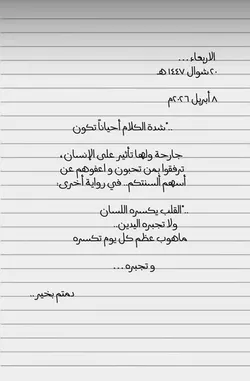 الاربعاء ...
٢٠ شوال ١٤٤٧ هـ
٨ أبريل ٢٠٢٦م
.."شدة الكلام أحياناً تكون
جارحة ولها تأثير على الإنسان ،
ترفقوا بمن تحبون و اعفوهم عن
أسهم ألسنتكم.. في رواية أخرى:
.."القلب يكسره اللسان
ولا تجبره اليدين..
ماهوب عظم كل يوم تكسره
و تجبره ...
دمتم بخير ..